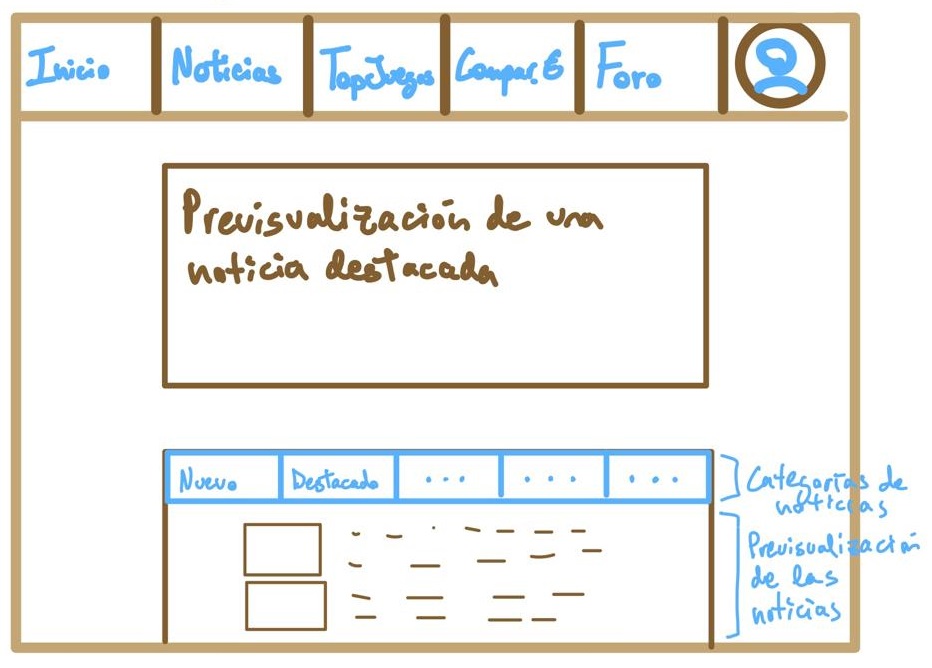 Inicio
Noticias
TopJuegos
Compar. €
Foro
Previsualización de una
noticia destacada
Nuevo
Destacado
...
...
...
Categorías de
noticias
Previsualización
de las
noticias